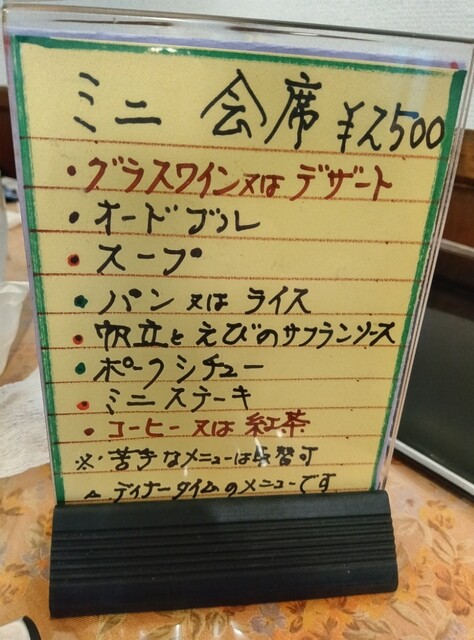 ミニ 会席 ¥2500
・グラスワイン又は デザート
・オードブル
・スープ
・パン 又は ライス
・帆立と えびのサフランソース
・ポークシチュー
・ミニステーキ
・コーヒー 又は 紅茶
※苦手なメニューは 替可
ディナータイムのメニューです